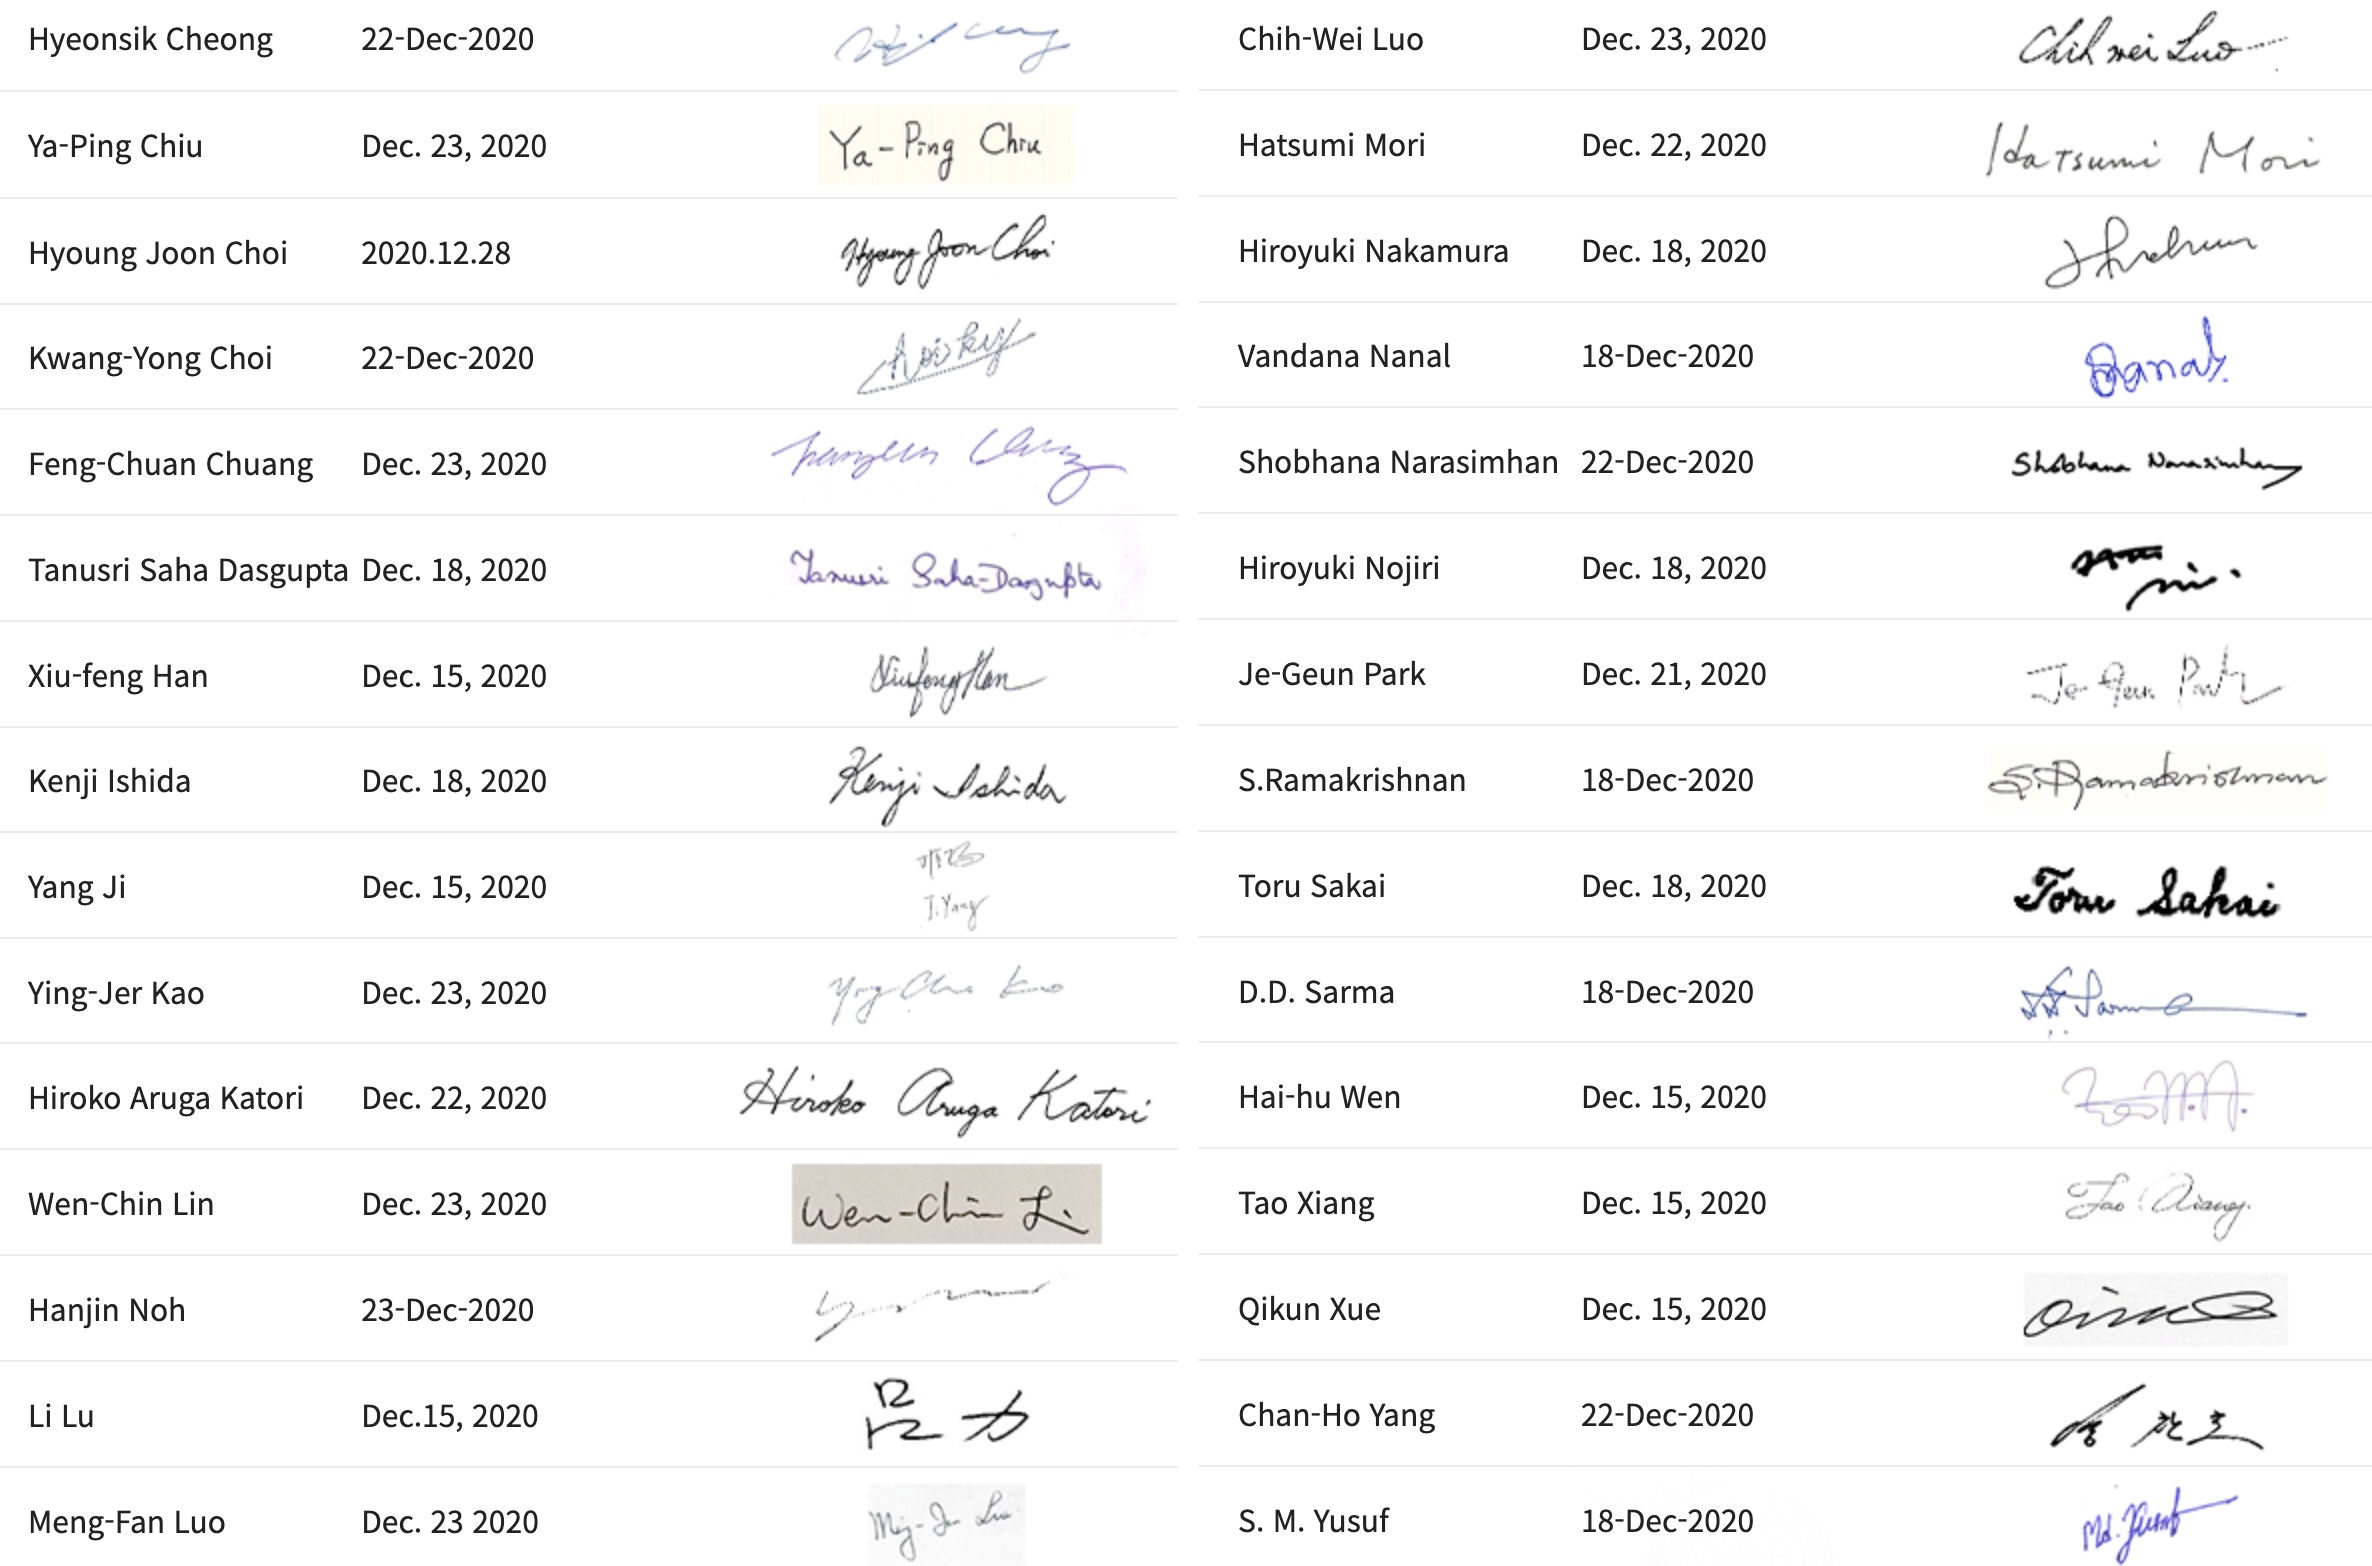 Hyeonsik Cheong 22-Dec-2020
Ya-Ping Chiu Dec. 23, 2020 Ya-Ping Chiu
Hyoung Joon Choi 2020.12.28 Hyoung Joon Choi
Kwang-Yong Choi 22-Dec-2020
Feng-Chuan Chuang Dec. 23, 2020
Tanusri Saha Dasgupta Dec. 18, 2020 Tanusri Saha-Dasgupta
Xiu-feng Han Dec. 15, 2020 Xiufeng Han
Kenji Ishida Dec. 18, 2020 Kenji Ishida
Yang Ji Dec. 15, 2020 J. Yang
Ying-Jer Kao Dec. 23, 2020 Kao
Hiroko Aruga Katori Dec. 22, 2020 Hiroko Aruga Katori
Wen-Chin Lin Dec. 23, 2020 Wen-Chin Li
Hanjin Noh 23-Dec-2020
Li Lu Dec.15, 2020 吕力
Meng-Fan Luo Dec. 23 2020
Chih-Wei Luo Dec. 23, 2020 Chih wei Luo
Hatsumi Mori Dec. 22, 2020 Hatsumi Mori
Hiroyuki Nakamura Dec. 18, 2020
Vandana Nanal 18-Dec-2020
Shobhana Narasimhan 22-Dec-2020 Shobhana Narasimhan
Hiroyuki Nojiri Dec. 18, 2020
Je-Geun Park Dec. 21, 2020 Je-Geun Park
S.Ramakrishnan 18-Dec-2020 S. Ramakrishnan
Toru Sakai Dec. 18, 2020 Toru Sakai
D.D. Sarma 18-Dec-2020 Sarma
Hai-hu Wen Dec. 15, 2020
Tao Xiang Dec. 15, 2020 Tao Xiang
Qikun Xue Dec. 15, 2020
Chan-Ho Yang 22-Dec-2020
S. M. Yusuf 18-Dec-2020 Md. Yusuf